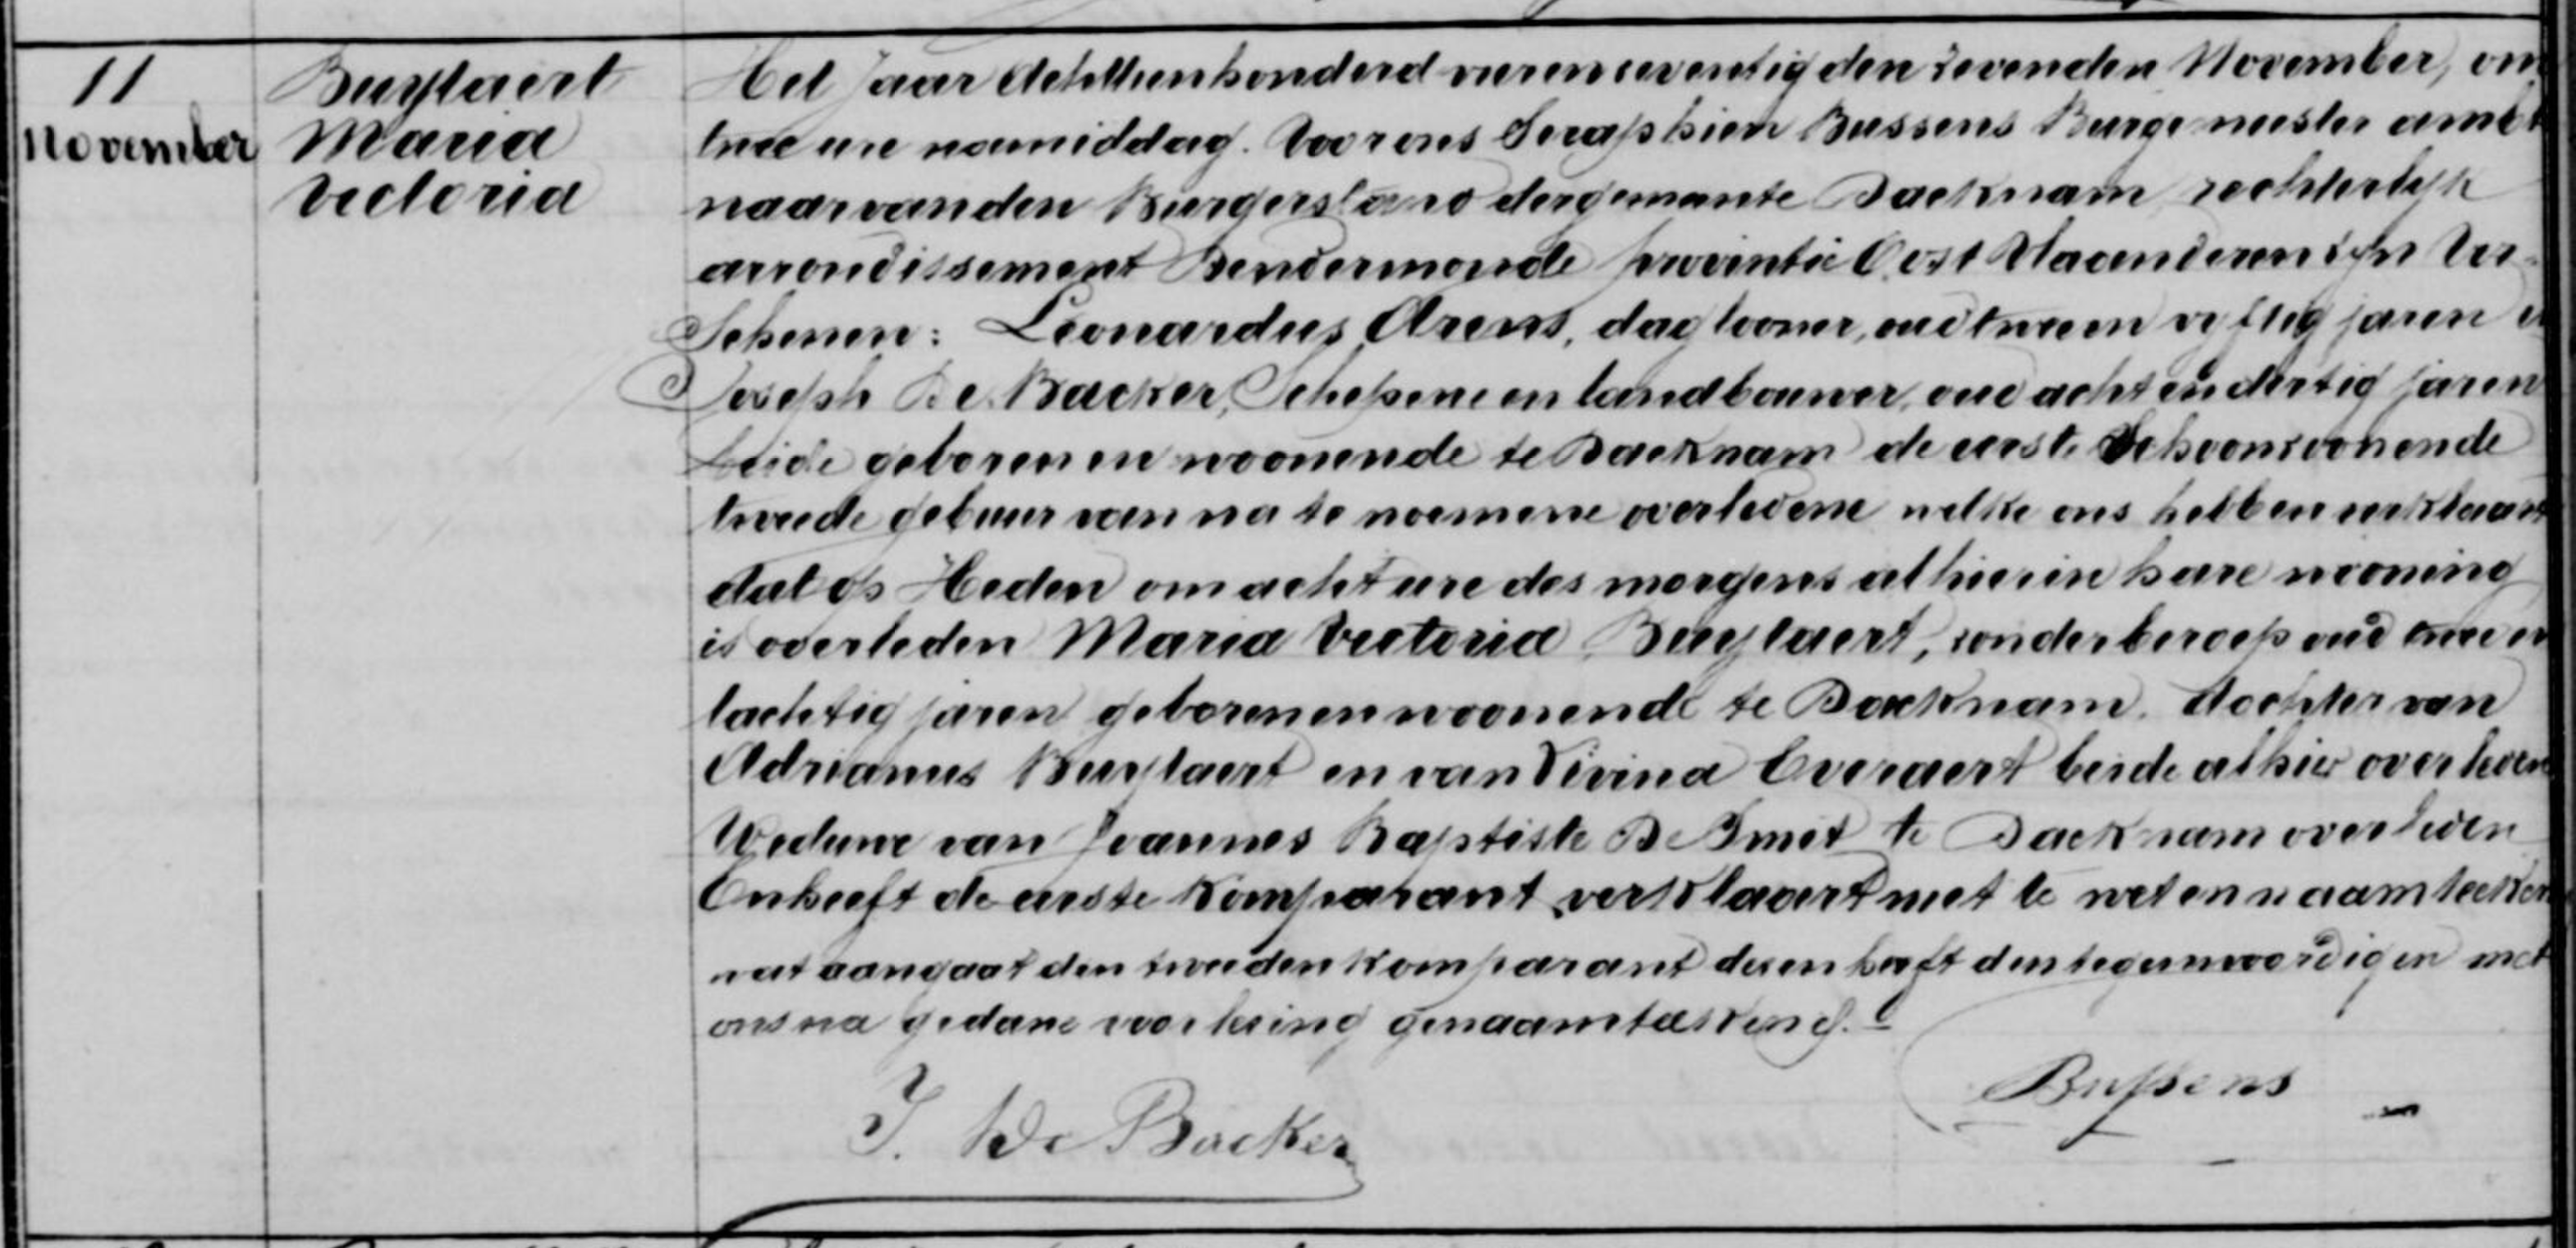 11
November
Buytaert
Maria
Victoria
Het Jaar achttienhonderd vierenzeventig den zevenden November, om
twee ure namiddag. Voor ons Seraphien Bussens Burgemeester ambt
naar van den Burgerstand der gemeente Daeknam rechterlyk
arrondissement Dendermonde provintie Oost Vlaanderen zyn Ver=
Schenen: Leonardus Arens, daglooner, oud twee en vyftig jaren en
Joseph De Backer, Schepene en landbouwer, oud acht en dertig jaren
beide geboren en woonende te Daeknam de eerste Schoonzoon en de
tweede gebuur van na te noemene overledene welke ons hebben verklaart
dat op Heden om acht ure des morgens alhier in hare wooning
is overleden Maria Victoria Buytaert, zonder beroep oud twee en
tachtig jaren geboren en woonende te Daeknam. dochter van
Adrianus Buytaert en van Vivina Everaert beide alhier overleden
Weduwe van Joannes Baptiste De Smet te Daeknam overleden
En heeft de eerste Komparant verklaart niet te weten naamteeken
wat aangaat den tweeden Komparant dezen heeft den tegenwoordigen met
ons na gedane voorlezing genaamteekend.
J. De Backer
Bussens